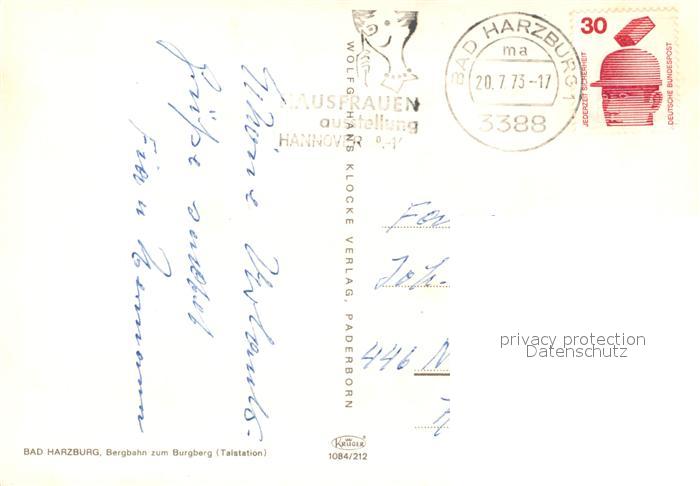 30
JEDERZEIT SICHERHEIT
DEUTSCHE BUNDESPOST
BAD HARZBURG 1
ma
20.7.73-17
3388
HAUSFRAUEN
ausstellung
HANNOVER
Schöne Urlaubs-
Grüße sendet
Frau
WOLFG. HANS KLOCKE VERLAG, PADERBORN
Fa
Joh.
446 N
privacy protection
Datenschutz
BAD HARZBURG, Bergbahn zum Burgberg (Talstation)
KRÜGER
1084/212